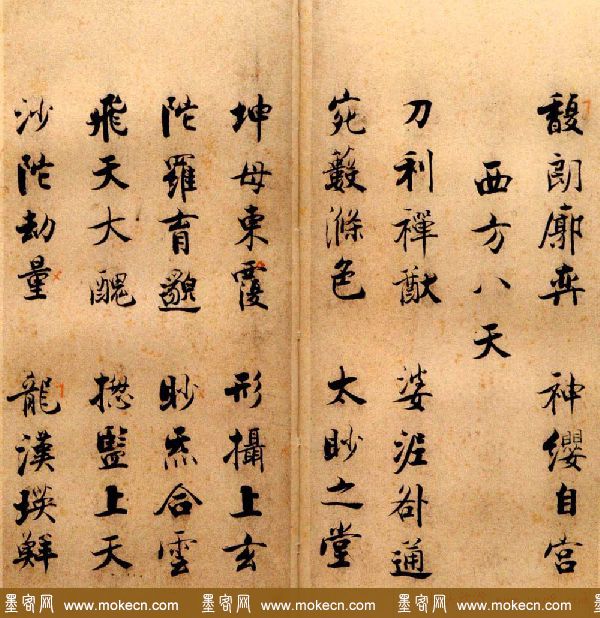 馥朗廓奕　神纓自宮
西方八天
刀利禪猷　婆泥咎通
宛藪滌色　太眇之堂
坤母東覆　形攝上玄
陀羅育邈　眇炁合雲
飛天大醜　揔監上天
沙陀劫量　龍漢瑛鮮
墨客网 www.mokecn.com 墨客网 www.mokecn.com 墨客网 www.mokecn.com 墨